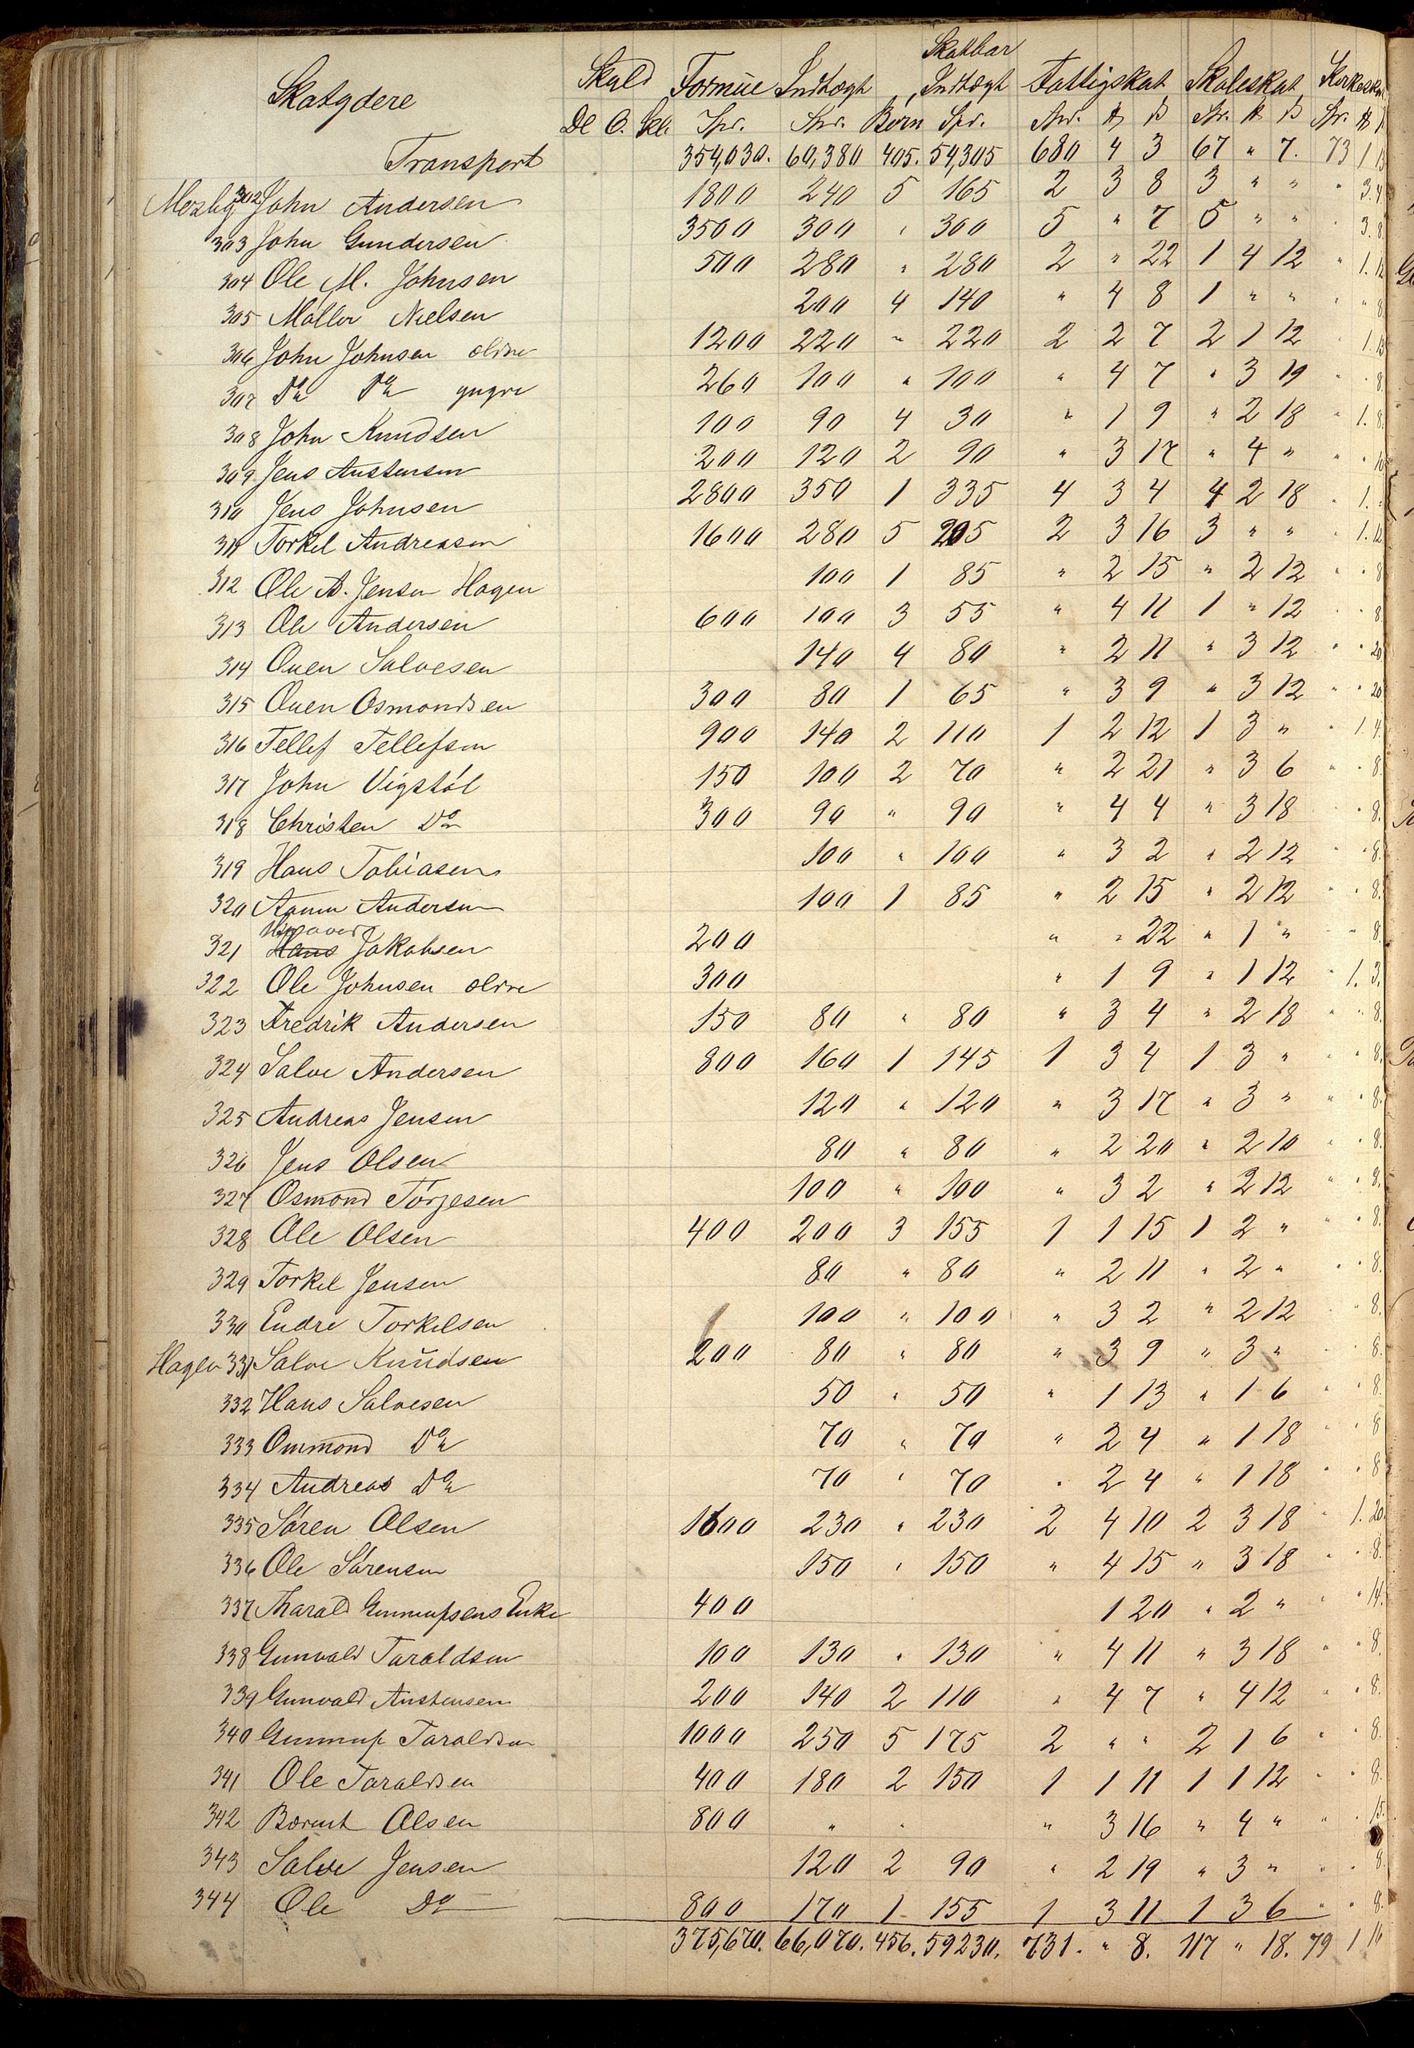 Skatydere Skyld Formue Indtægt Børn Skatbar Indtægt Fattigskat Skoleskat Kirkeskat
Dl O. Skl. Spr. Spr. Børn Spr. Spr. # ß Spr. # ß Spr. #
Transport 354,030. 60,380 405. 54,305 680 4 3 67 " 7. 73 1 13
302 John Andersen 1800 240 5 165 2 3 8 3 " " " 3. 4
303 John Gundersen 3500 300 " 300 5 " 7 5 " " " 3. 8.
304 Ole M. Johnsen 500 280 " 280 2 " 22 1 4 12 " 1. 12
305 Møller Nielsen 200 4 140 " 4 8 1 " " " " 8
306 John Johnsen ældre 1200 220 " 220 2 2 7 2 1 12 " 1. 13
307 Do Do yngre 260 100 " 100 " 4 7 " 3 19 " " 8.
308 John Knudsen 100 90 4 30 " 1 9 " 2 18 " 1. 8.
309 Jens Austensen 200 120 2 90 " 3 17 " 4 " " " 10
310 Jens Johnsen 2800 350 1 335 4 3 4 4 2 18 " 1. "
311 Torkel Andreasen 1600 280 5 205 2 3 16 3 " " " 1. 12
312 Ole A. Jensen Hagen 100 1 85 " 2 15 " 2 12 " " 8
313 Ole Andersen 600 100 3 55 " 4 11 1 " 12 " " 8.
314 Ouen Salvesen 140 4 80 " 2 11 " 3 12 " " 20
315 Ouen Osmondsen 300 80 1 65 " 3 9 " 3 12 " " 20
316 Tellef Tellefsen 900 140 2 110 1 2 12 1 3 " " 1 4.
317 John Vigstøl 150 100 2 70 " 2 21 " 3 6 " " 8.
318 Christen Do 300 90 " 90 " 4 4 " 3 18 " " 8.
319 Hans Tobiasen 100 " 100 " 3 2 " 2 12 " " 8.
320 Aanen Andersen 100 1 85 " 2 15 " 2 12 " " 8.
321 Hans Jakobsen 200 " " 22 " 1 " " " 8.
322 Ole Johnsen ældre 300 " 1 9 " 1 12 " 1. 3.
323 Fredrik Andersen 150 80 " 80 " 3 4 " 2 18 " " 8.
324 Salve Andersen 800 160 1 145 1 3 4 1 3 " " " 8.
325 Andreas Jensen 120 " 120 " 3 17 " 3 " " " 8.
326 Jens Olsen 80 " 80 " 2 20 " 2 10 " " 8.
327 Osmond Tørjesen 100 " 100 " 3 2 " 2 12 " " 8.
328 Ole Olsen 400 200 3 155 1 1 15 1 2 " " " 8.
329 Torkel Jensen 80 " 80 " 2 11 " 2 " " " 8.
330 Endre Torkelsen 100 " 100 " 3 2 " 2 12 " " 8.
Hagen 331 Salve Knudsen 200 80 " 80 " 3 9 " 3 " " " 8.
332 Hans Salvesen 50 " 50 " 1 13 " 1 6 " " 8.
333 Ommond Do 70 " 70 " 2 4 " 1 18 " " 8
334 Andreas Do 70 " 70 " 2 4 " 1 18 " " 8
335 Søren Olsen 1600 230 " 230 2 4 10 2 3 18 " 1. 20.
336 Ole Sørensen 150 " 150 " 4 15 " 3 18 " " 8.
337 Tharald Gunnufsens Enke 400 1 20 " 2 " " " 14.
338 Gunvald Taraldsen 100 130 " 130 " 4 11 " 3 18 " " 8.
339 Gunvald Austensen 200 140 2 110 " 4 7 " 4 12 " " 8.
340 Gunnuf Taraldsen 1000 250 5 175 2 " " 2 1 6 " " 8.
341 Ole Taraldsen 400 180 2 150 1 1 11 1 1 12 " " 8.
342 Bærent Olsen 800 " " " 3 16 " 4 " " " 15.
343 Salve Jensen 120 2 90 " 2 19 " 3 " " " 8.
344 Ole Do 800 170 1 155 1 3 11 1 3 6 " " 8.
375,670. 66,070. 456. 59230. 731. " 8. 117 " 18. 79 1 16